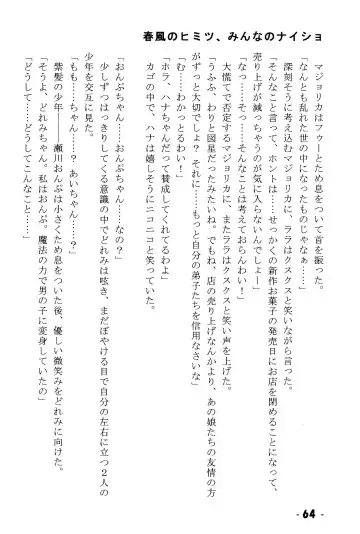 春風のヒミツ、みんなのナイショ
マジョリカはフゥーとため息をついて首を振った。
「なんとも乱れた世の中になったものじゃなぁ――」
深刻そうに考え込むマジョリカに、ララはクスクスと笑いながら言った。
「そんなこと言って、ホントは……せっかくの新作お菓子の発売日にお店を閉めることになって、
売り上げが減っちゃうのが気に入らないんでしょー」
「なっ……そっ……そんなことは考えておらんわい！」
大慌てで否定するマジョリカに、またララはクスクスと笑い声を上げた。
「うふふ、わりと図星だったみたいね。でもね、店の売り上げなんかより、あの娘たちの友情の方
がずっと大切でしょ？　それに……もっと自分の弟子たちを信用なさいな」
「む……わかっとるわい！」
「ホラ、ハナちゃんだって賛成してくれてるわよ」
カゴの中で、ハナは嬉しそうにニコニコと笑っていた。
「おんぷちゃん……おんぷちゃん……なの？」
少しずつはっきりしてくる意識の中でどれみは呟き、まだぼやける目で自分の左右に立つ２人の
少年を交互に見た。
「もも……ちゃん……？　あいちゃん……？」
紫髪の少年――瀬川おんぷは小さくため息をついた後、優しい微笑みをどれみに向けた。
「そうよ、どれみちゃん。私はおんぷ。魔法の力で男の子に変身していたの」
「どうして……どうしてこんなこと……」
- 64 -